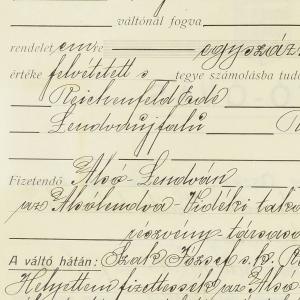 váltónál fogva
rendelet emre egyszáz
értéke felvétetett s tegye számolásba tud
Reichenfeld Ede
Lendvaujfalu
Fizetendő Alsó-Lendván
az Alsólendva-Vidéki taka
részvény-társasá
A váltó hátán: Szak József s. k.
Helyettem fizettessék az Alsó